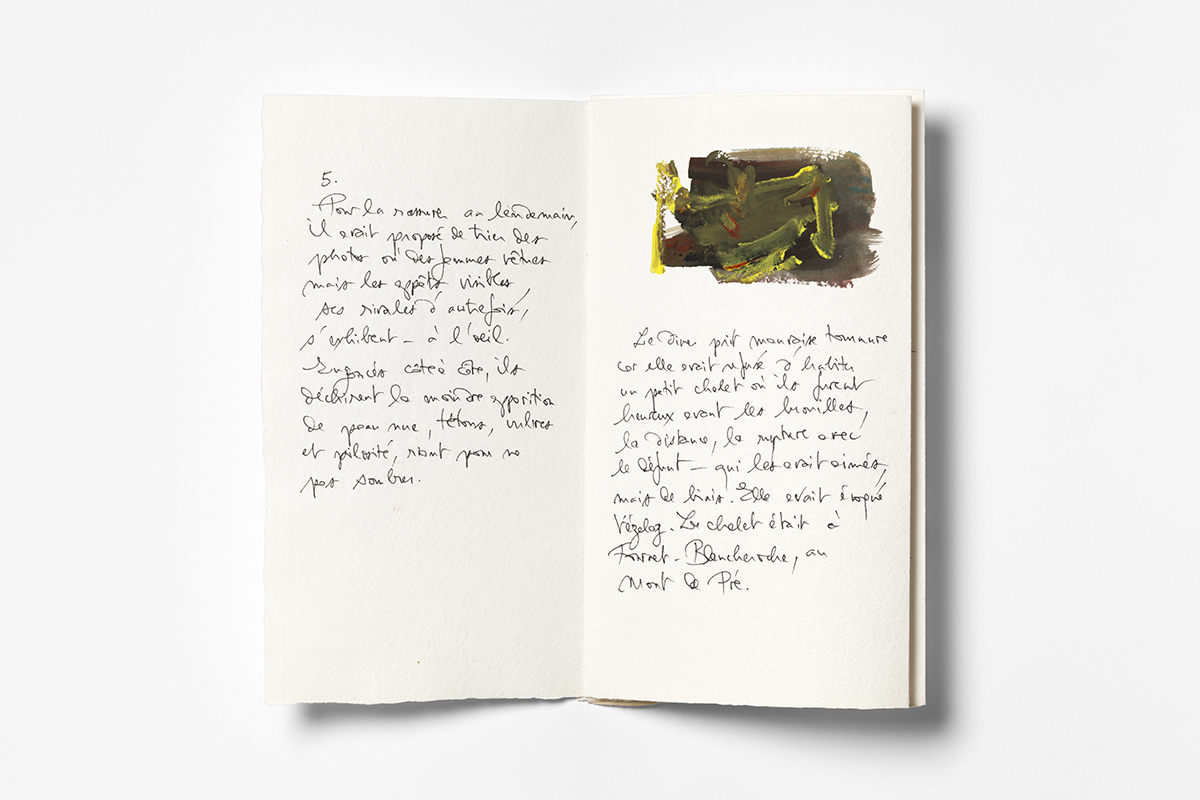 5.
Pour la rassurer au lendemain,
il avait proposé de trier des
photos où des femmes vêtues
mais les appâts visibles,
ses rivales d'autrefois,
s'exhibent – à l'oeil.
côte à côte, ils
déchirent la moindre apparition
de peau nue, tétons, vulves
et pilosité, riant pour ne
pas sombrer.
Le dîner prit mauvaise tournure
car elle avait refusé d'habiter
un petit chalet où ils furent
heureux avant les brouilles,
la distance, la rupture avec
le défunt – qui les avait aimés,
mais de biais. Elle avait évoqué
Vézelay. Le chalet était à
Fournet-Blancheroche, au
Mont de Pré.